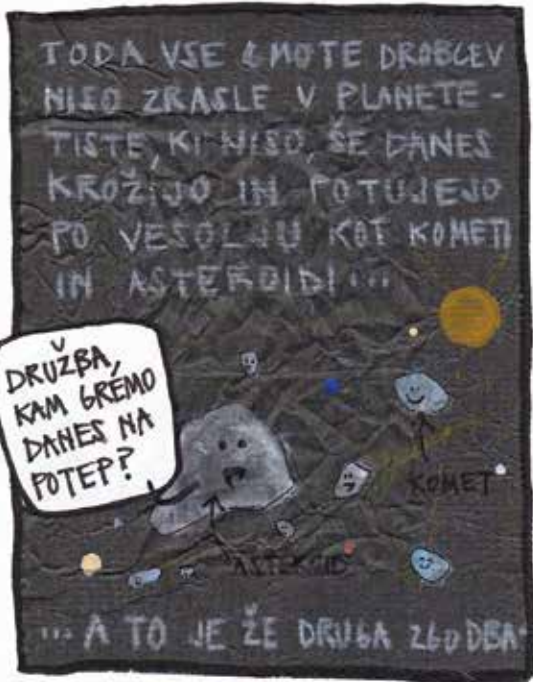 TODA VSE GMOTE DROBCEV
NISO ZRASLE V PLANETE -
TISTE, KI NISO, ŠE DANES
KROŽIJO IN POTUJEJO
PO VESOLJU KOT KOMETI
IN ASTEROIDI...
DRUŽBA,
KAM GREMO
DANES NA
POTEP?
KOMET
ASTEROID
... A TO JE ŽE DRUGA ZGODBA.